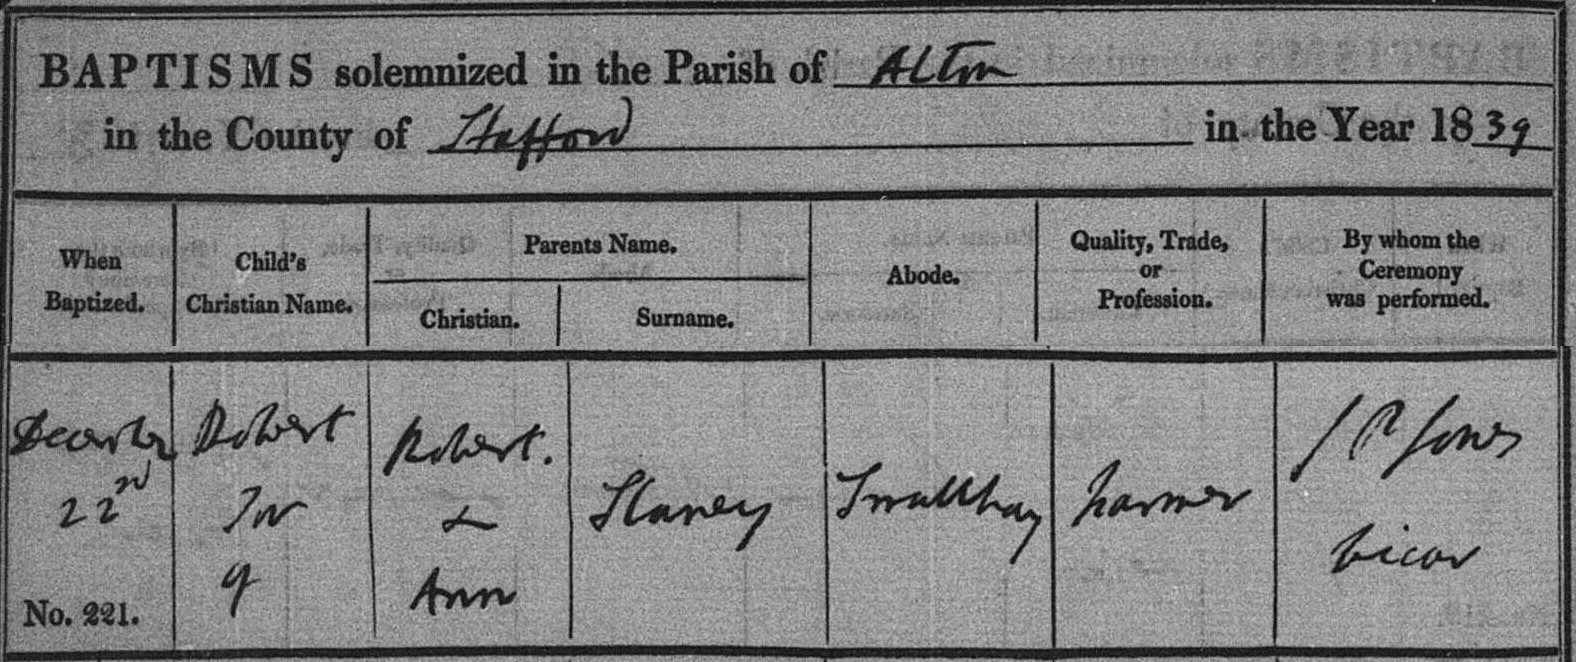 BAPTISMS solemnized in the Parish of Alton
in the County of Stafford in the Year 1839
When
Baptized.
Child's
Christian Name.
Parents Name.
Christian.
Surname.
Abode.
Quality, Trade,
or
Profession.
By whom the
Ceremony
was performed.
December
22nd
No. 221.
Robert
Son
of
Robert.
&
Ann
Slaney
Smallhay
Farmer
J P Jones
Vicar